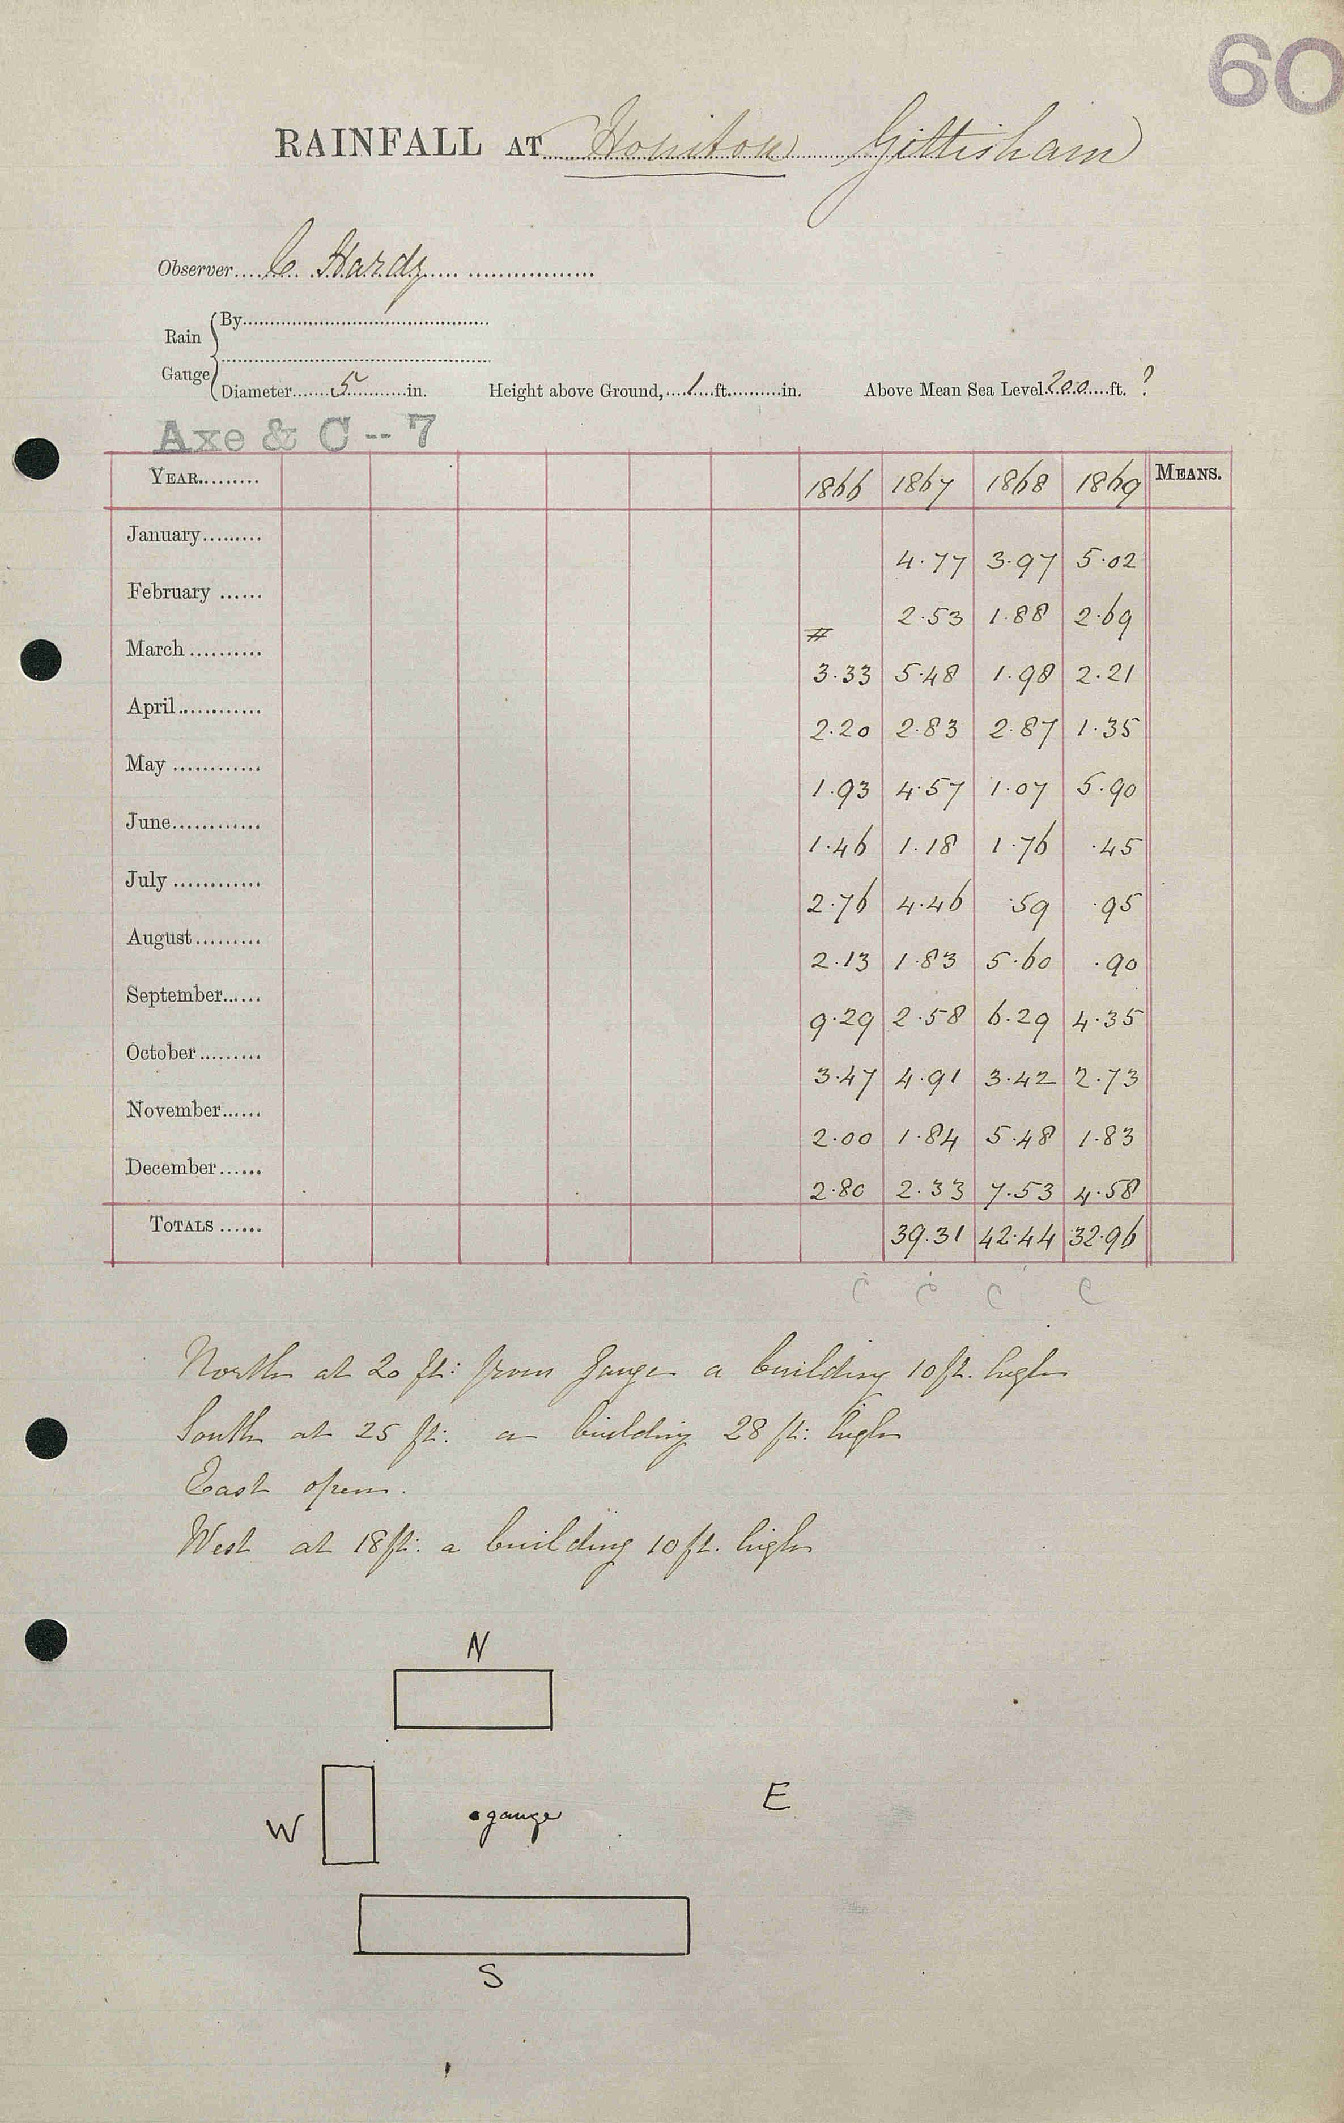 60
RAINFALL AT Honiton Gittisham
Observer C Hardy
Rain Gauge
By
Diameter 5 in. Height above Ground, 1 ft. in. Above Mean Sea Level 200 ft. ?
Axe & C -- 7
YEAR 1866 1867 1868 1869 MEANS.
January 4.77 3.97 5.02
February 2.53 1.88 2.69
#
March 3.33 5.48 1.98 2.21
April 2.20 2.83 2.87 1.35
May 1.93 4.57 1.07 5.90
June 1.46 1.18 1.76 .45
July 2.76 4.46 .59 .95
August 2.13 1.83 5.60 .90
September 9.29 2.58 6.29 4.35
October 3.47 4.91 3.42 2.73
November 2.00 1.84 5.48 1.83
December 2.80 2.33 7.53 4.58
TOTALS 39.31 42.44 32.96
C C C C
North at 20 ft: from gauge a building 10 ft. high
South at 25 ft: a building 28 ft: high
East open.
West at 18 ft: a building 10 ft. high
N
W gauge E
S